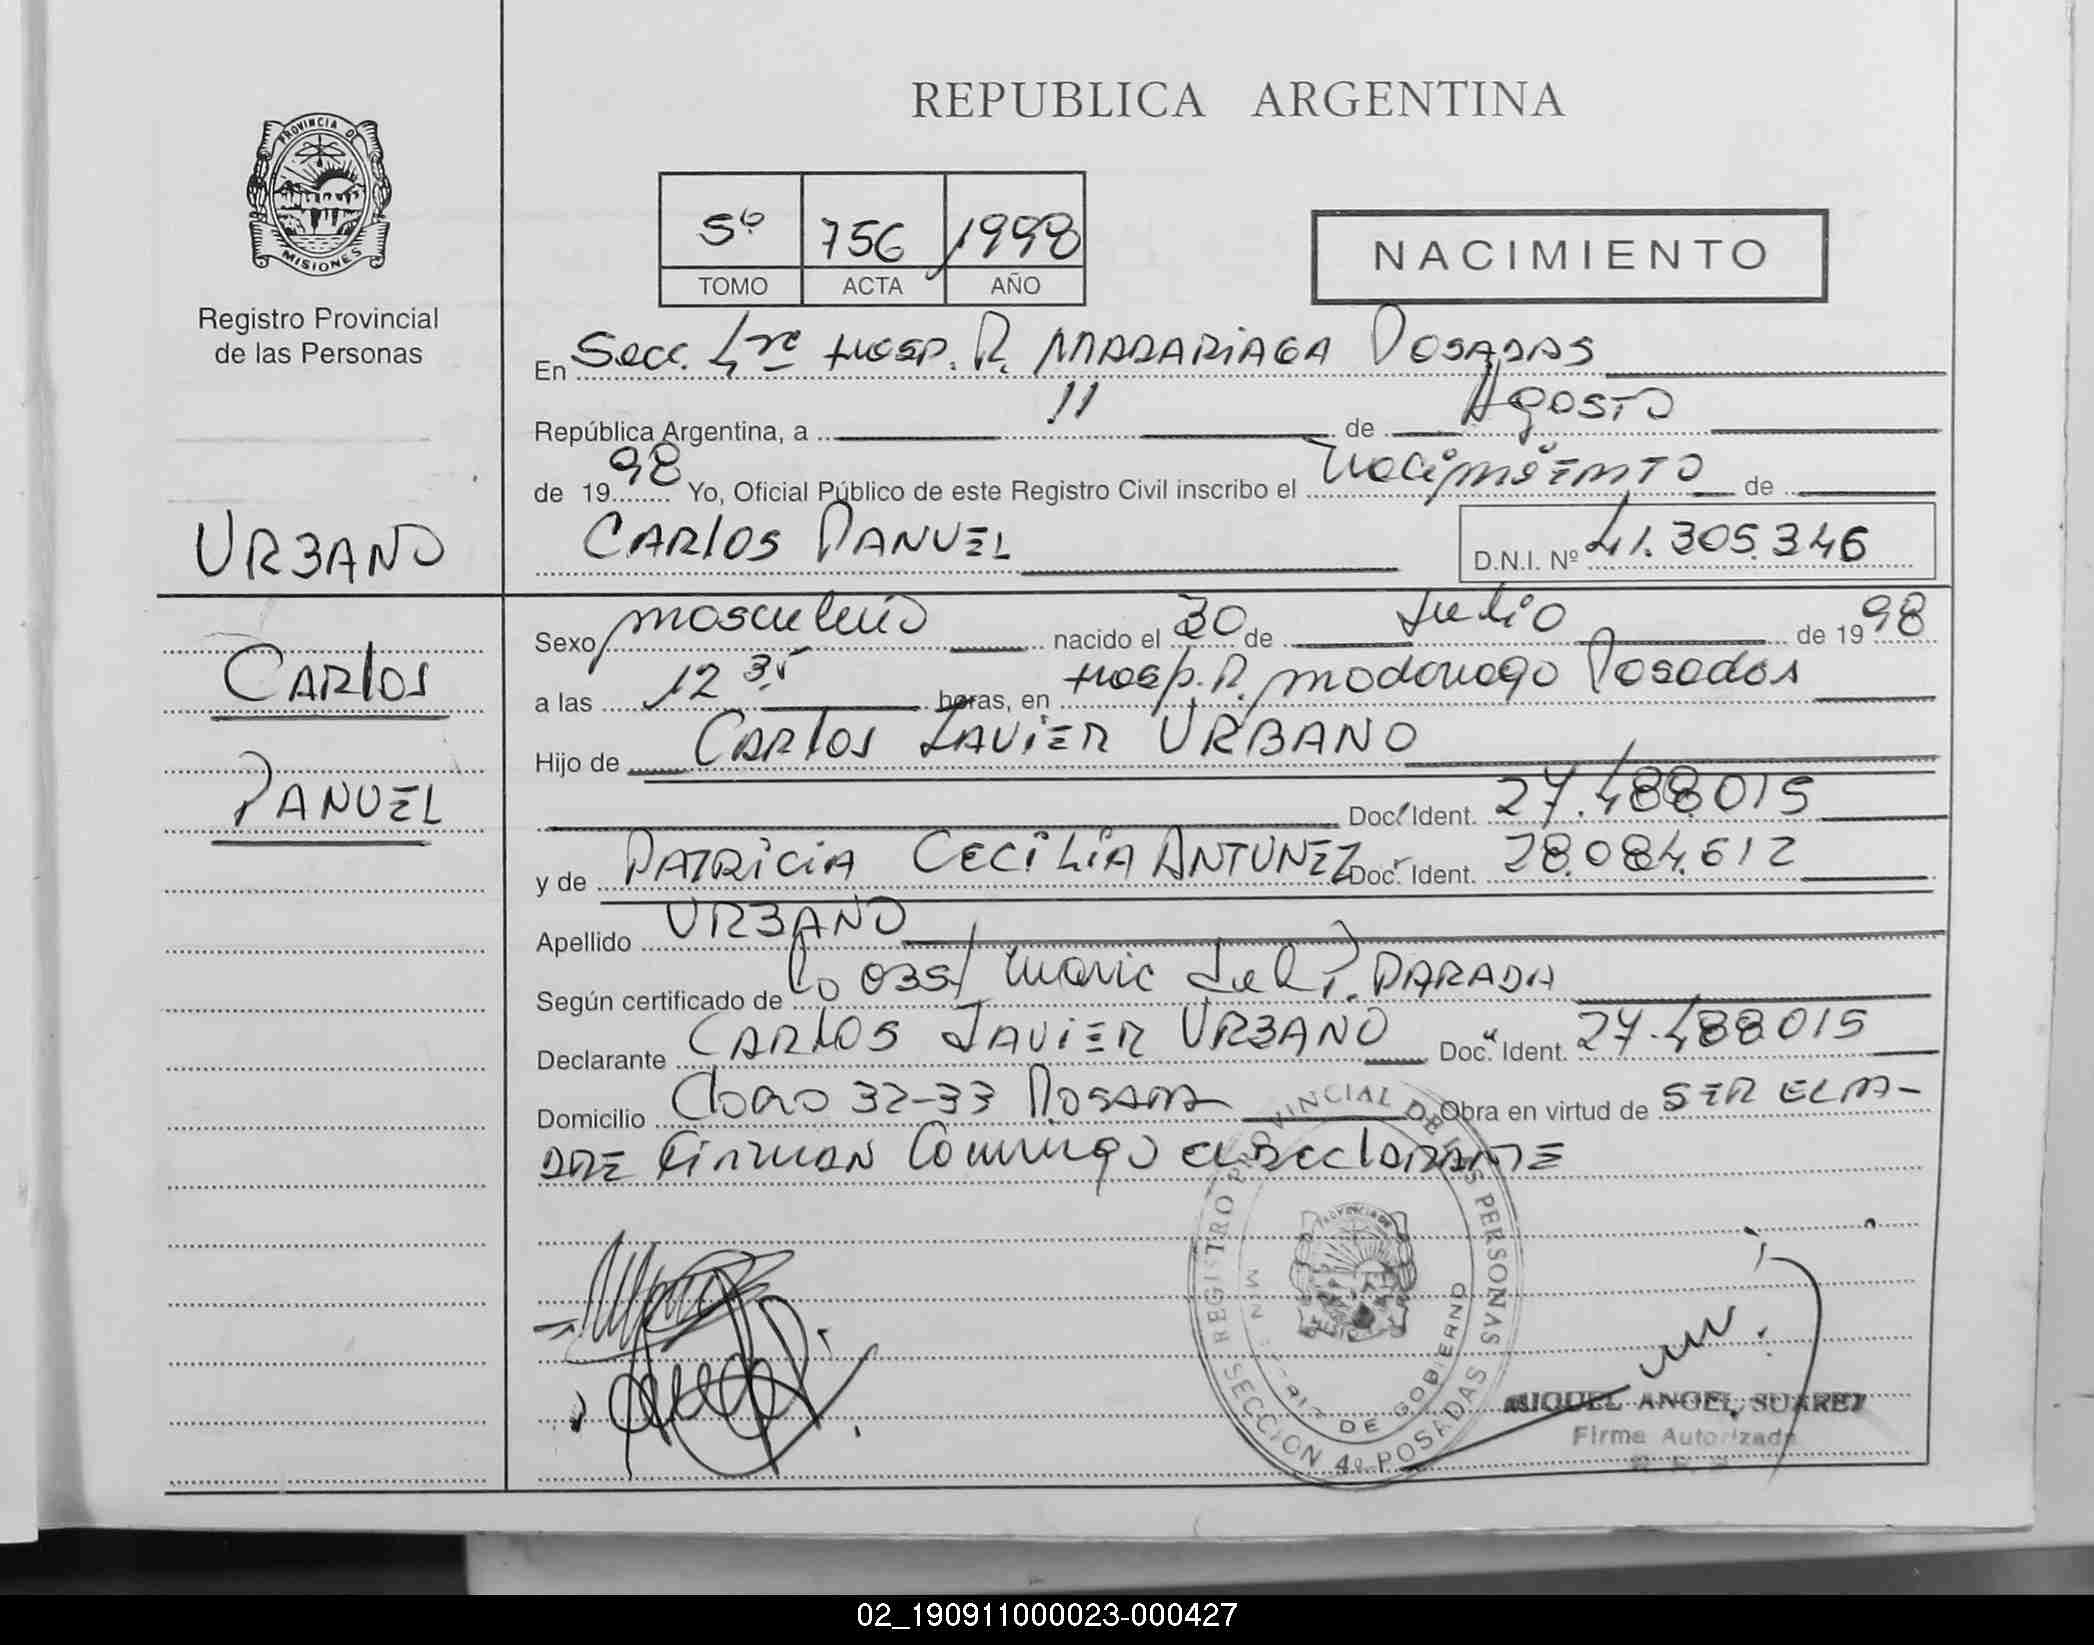 REPUBLICA ARGENTINA
PROVINCIA DE
MISIONES
Registro Provincial
de las Personas
5º 756 1998
TOMO ACTA AÑO
NACIMIENTO
En Secc. 4ta Hosp. R. MADARIAGA POSADAS
República Argentina, a 11 de Agosto
de 1998 Yo, Oficial Público de este Registro Civil inscribo el Nacimiento de
CARLOS MANUEL D.N.I. Nº 41.305.346
URBANO
CARLOS
MANUEL
Sexo masculino nacido el 30 de Julio de 1998
a las 12 35 horas, en Hosp. R. Madariaga Posadas
Hijo de CARLOS JAVIER URBANO
Doc. Ident. 27.488.015
y de PATRICIA CECILIA ANTUNEZ Doc. Ident. 28.084.612
Apellido URBANO
Según certificado de OBS/ Maria del P. PARADA
Declarante CARLOS JAVIER URBANO Doc. Ident. 27.488.015
Domicilio 32-33 Posadas Obra en virtud de SER EL PA-
DRE Firman Conmigo el DeclaRANTE
REGISTRO PROVINCIAL DE LAS PERSONAS
SECCION 4º POSADAS
DE GOBIERNO
MIGUEL ANGEL SUAREZ
Firma Autorizada
02_190911000023-000427